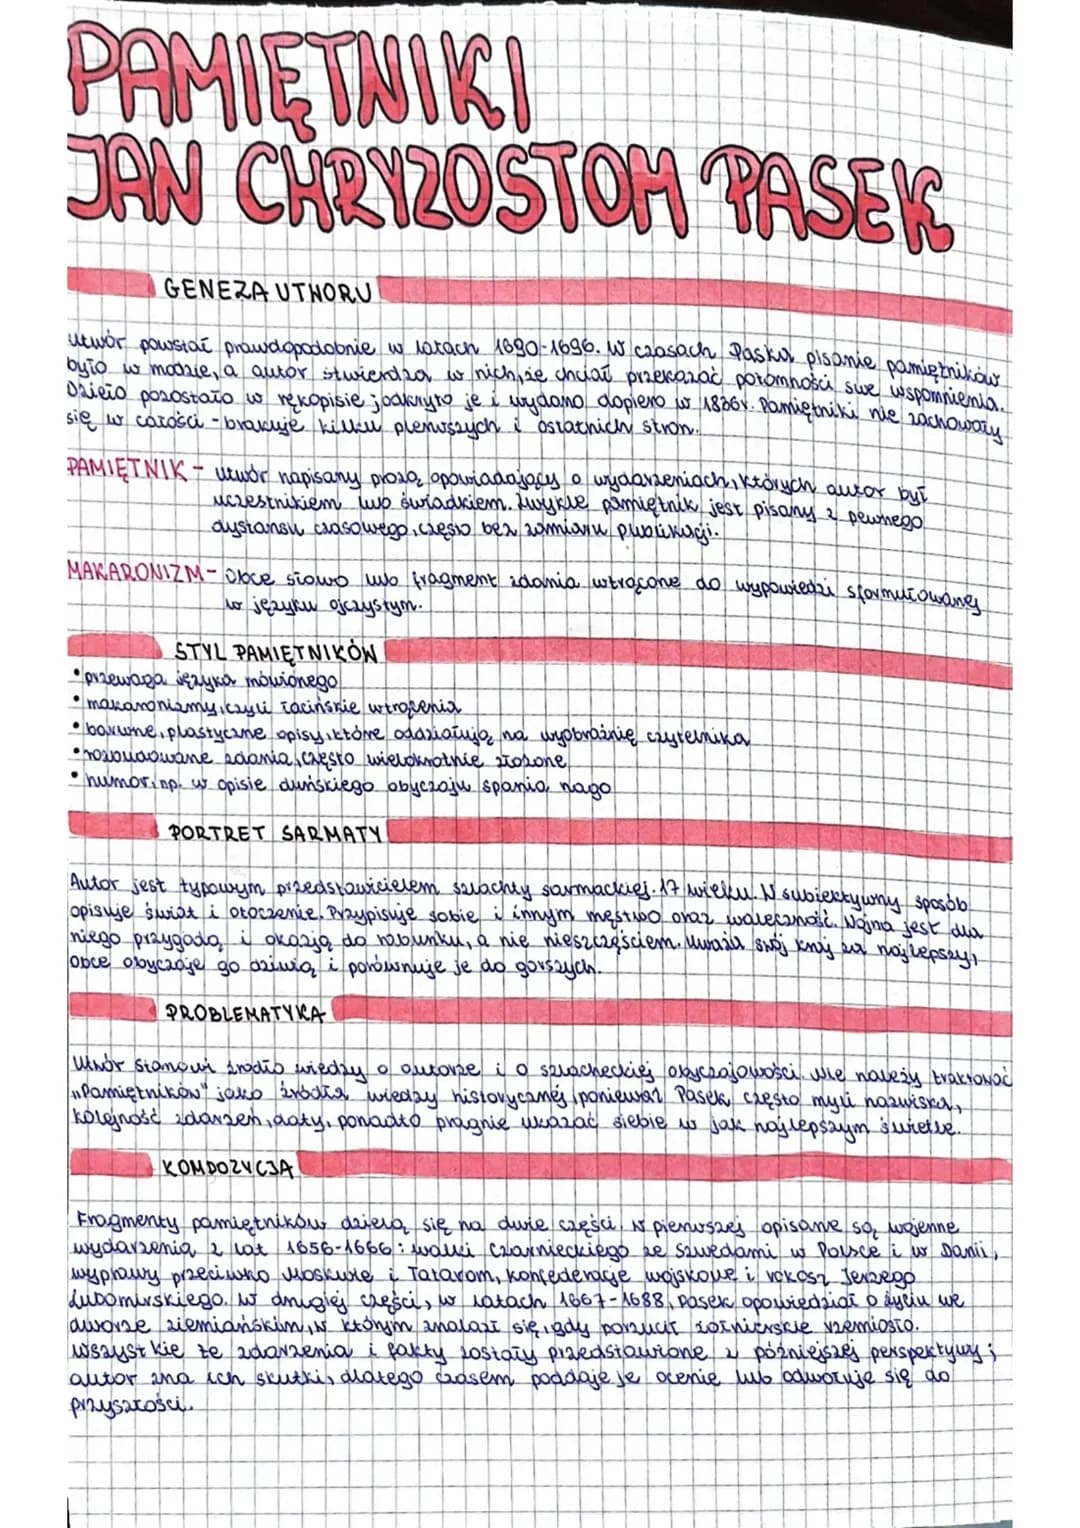 PAMIĘTNIKI
JAN CHRYZOSTOM PASEK
GENEZA UTWORU
Utwór powstał prawdopodobnie w latach 1690-1696. W czasach Paska pisanie pamiętników
było w modzie, a autor stwierdza w nich, że chciał przekazać potomności swe wspomnienia.
Dzieło pozostało w rękopisie, odkryto je i wydano dopiero w 1836r. Pamiętniki nie zachowały
się w całości - brakuje kilku pierwszych i ostatnich stron.
PAMIĘTNIK - utwór napisany prozą, opowiadający o wydarzeniach, których autor był
uczestnikiem lub świadkiem. Zwykle pamiętnik jest pisany z pewnego
dystansu czasowego, często bez zamiaru publikacji.
MAKARONIZM - Obce słowo lub fragment zdania wtrącone do wypowiedzi sformułowanej
w języku ojczystym.
STYL PAMIĘTNIKÓW
• przewaga języka mówionego
• makaronizmy, czyli łacińskie wtrącenia
• barwne, plastyczne opisy, które oddziałują na wyobraźnię czytelnika
• rozbudowane zdania, często wielokrotnie złożone
• humor, np. w opisie duńskiego obyczaju spania nago
PORTRET SARMATY
Autor jest typowym przedstawicielem szlachty sarmackiej 17 wieku. W subiektywny sposób
opisuje świat i otoczenie. Przypisuje sobie i innym męstwo oraz waleczność. Wojna jest dla
niego przygodą i okazją do rabunku, a nie nieszczęściem. Uważa swój kraj za najlepszy,
obce obyczaje go dziwią i porównuje je do gorszych.
PROBLEMATYKA
Utwór stanowi źródło wiedzy o autorze i o szlacheckiej obyczajowości. Nie należy traktować
"Pamiętników" jako źródła wiedzy historycznej, ponieważ Pasek często myli nazwiska,
kolejność zdarzeń, daty, ponadto pragnie ukazać siebie w jak najlepszym świetle.
KOMPOZYCJA
Fragmenty pamiętników dzielą się na dwie części. W pierwszej opisane są wojenne
wydarzenia z lat 1656-1666: walki Czarnieckiego ze Szwedami w Polsce i w Danii,
wyprawy przeciwko Moskwie i Tatarom, konfederacje wojskowe i rokosz Jerzego
Lubomirskiego. W drugiej części, w latach 1667-1688, Pasek opowiedział o życiu we
dworze ziemiańskim, w którym znalazł się, gdy porzucił żołnierskie rzemiosło.
Wszystkie te zdarzenia i fakty zostały przedstawione z późniejszej perspektywy;
autor zna ich skutki, dlatego czasem poddaje je ocenie lub odwołuje się do
przyszłości.